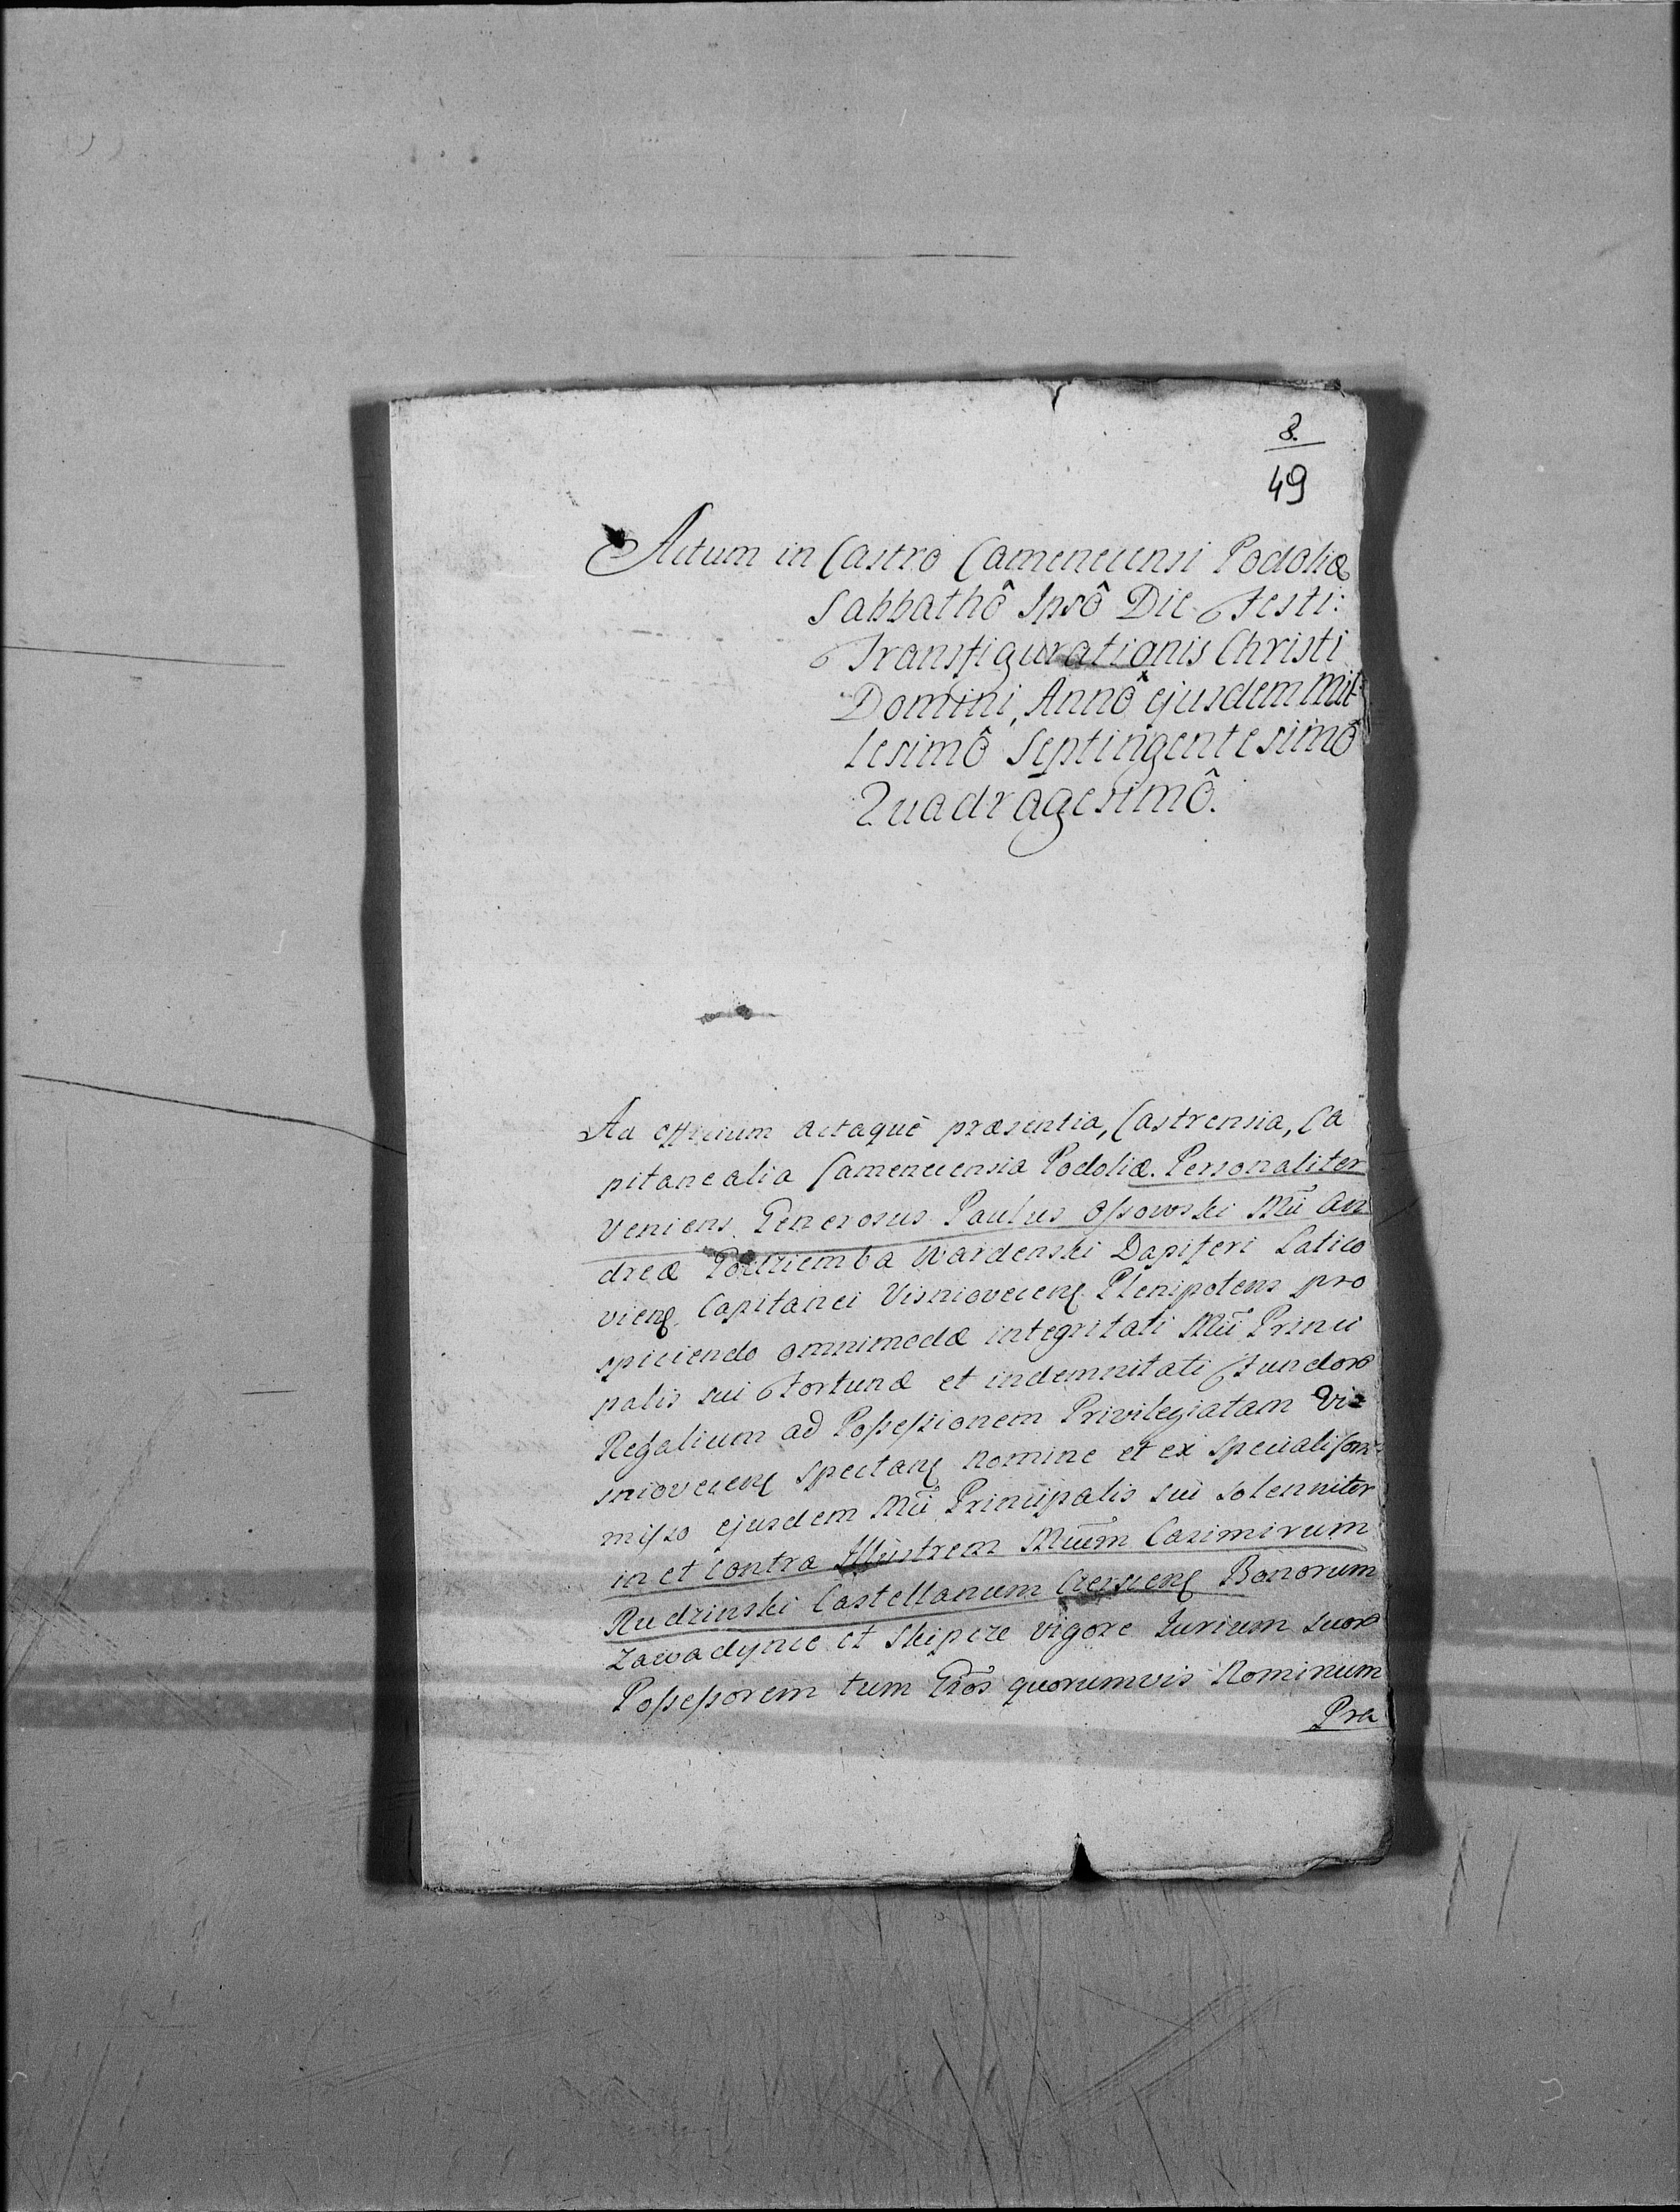 8.
49
Actum in Castro Camenecensi Podoliæ
Sabbathô Ipsô Die Festi:
Transfigurationis Christi
Domini, Annô ejusdem Mil-
lesimô Septingentesimô
Quadragesimô.
Ad officium actaquè præsentia, Castrensia, Ca
pitanealia Camenecensia Podoliæ. Personaliter
veniens Generosus Paulus Ossowski Mci An
dreæ Podziemba Wardenski Dapiferi Latico
viens. Capitanei Visniovecens. Plenipotens pro
spiciendo omnimodæ integritati Mci Princi
palis sui Fortunæ et indemnitati Fundor
Regalium ad Possessionem Privilegiatam Vi-
sniovecens spectans nomine et ex speciali com
misso ejusdem Mci Principalis sui solenniter
in et contra Illustrem Mcum Casimirum
Rudzinski Castellanum Czerscens Bonorum
Zawadynce et Skipcze vigore Iurium suor
Possessorem tum Gros quorumvis Nominum
Præ